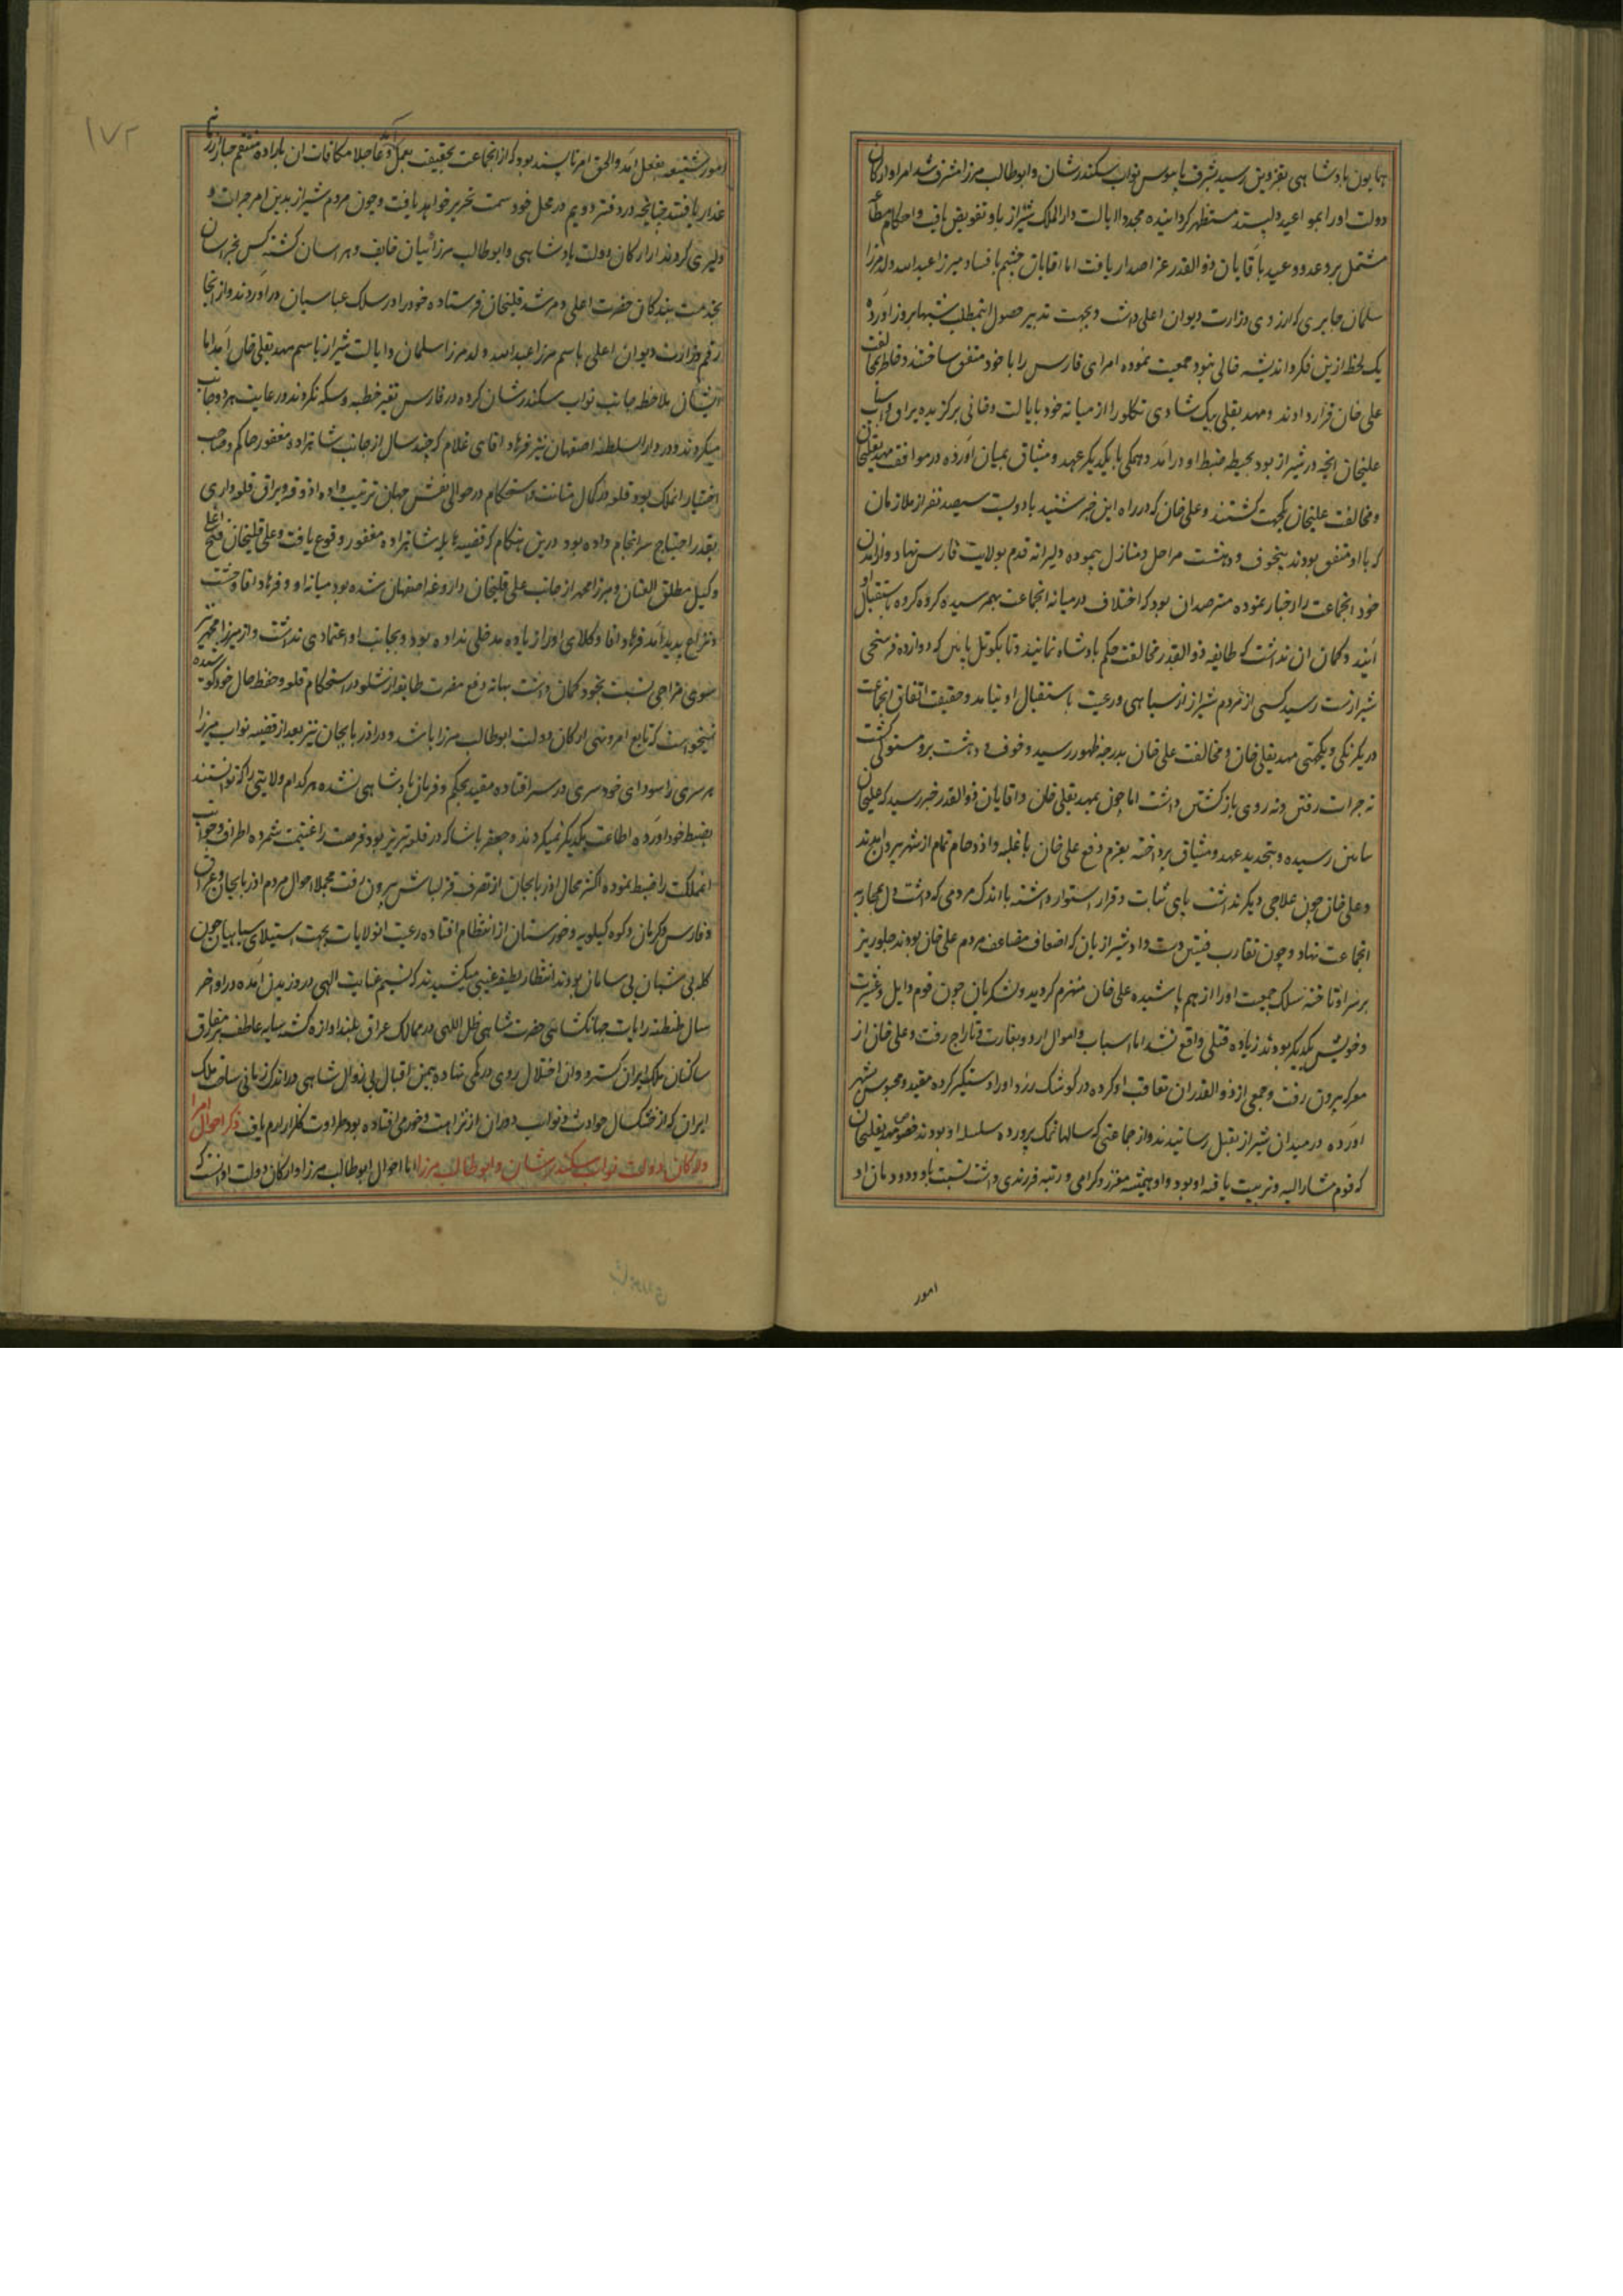 همایون پادشاهی بقزوین رسید بشرف پابوس نواب سکندرشان و ابوطالب میرزا مشرف شد امرا و ارکان
دولت او را بمواعید دلپسند مستظهر کردانیده مجددا ایالت دارالملک شیراز باو تفویض یافت و احکام مطاعه
مشتمل بر وعد و وعید باقایان ذوالقدر عز اصدار یافت اما اقایان چشم بافساد میرزا عبدالله ولد میرزا
سلمان جابری که ارزوی وزارت دیوان اعلی داشت و بجهت تدبیر حصول اینمطلب شبها بروز اورده
یک لحظه ازین فکر و اندیشه خالی نبود جمعیت نموده امرای فارس را با خود متفق ساختند و خاطر بمخالفت
علی خان قرار دادند و مهدیقلی بیک شادی تکلو را از میانه خود بایالت و خانی برکزیده یراق و اسباب
علیخان انچه در شیراز بود بحیطه ضبط او درآمد و همکی با یکدیکر عهد و میثاق بمیان اورده در موافقت مهدیقلیخان
و مخالفت علیخان یکجهت کشتند و علی خان که در راه این خبر شنید با دویست سیصد نفر از ملازمان
که با او متفق بودند بیخوف و دهشت مراحل و منازل پیموده دلیرانه قدم بولایت فارس نهاد و از آمدن
خود انجماعت را اخبار نموده مترصد ان بود که اختلاف در میانه انجماعت بهم رسیده کروه کروه باستقبال او
آیند و کمان ان نداشت که طایفه ذوالقدر مخالفت حکم پادشاه نمایند و تا بکوتل پایین که دوازده فرسخی
شیراز است رسید کسی از مردم شیراز از سپاهی و رعیت باستقبال او نیامد و حقیقت اتفاق انجماعت
در یکرنکی و یکجهتی مهدیقلی خان و مخالفت علی خان بدرجه ظهور رسید و خوف و دهشت برو مستولی کشت
نه جرات رفتن و نه روی بازکشتن داشت اما چون بمهدیقلی خان و اقایان ذوالقدر خبر رسید که علیخان
بپایین رسیده و بتجدید عهد و میثاق پرداخته بعزم دفع علی خان با غلبه و ازدحام تمام از شهر بیرون آمدند
و علی خان چون علاجی دیکر نداشت پای ثبات و قرار استوار داشته با اندک مردمی که داشت دل بمحاربه
انجماعت نهاد و چون تقارب فئتین دست داد شیرازیان که اضعاف مضاعف مردم علی خان بودند جلوریز
بر سر او تاخته سلک جمعیت او را از هم پاشیده علی خان منهزم کردید و لشکریان چون قوم و ایل و عشیرت
و خویش یکدیکر بودند زیاده قتلی واقع نشد اما اسباب و اموال اردو بغارت و تاراج رفت و علی خان از
معرکه بیرون رفت و جمعی از ذوالقدران تعاقب او کرده در کوشک زرد او را دستکیر کرده مقید و محبوس بشهر
اورده در میدان شیراز بقتل رسانیدند و از جماعتی که سالها نمک پرورده سلسله او بودند خصوص مهدیقلیخان
که قوم مشارالیه و تربیت یافته او بود و او همیشه معزز و کرامی و رتبه فرزندی داشت نسبت باو و دودمان او
امور
۱۷۲
امور شنیعه بفعل آمد والحق امر ناپسند بود که از انجماعت بحقیقت بعمل آمد و عاجلا مکافات ان باراده منتقم جبار از زمانه
غدار یافتند چنانچه در دفتر دویم در محل خود سمت تحریر خواهد یافت و چون مردم شیراز بدین امر جرات و
دلیری کردند از ارکان دولت پادشاهی و ابوطالب میرزائیان خایف و هراسان کشته کس بخراسان
بخدمت بندکان حضرت اعلی و مرشد قلیخان فرستاده خود را در سلک عباسیان دراوردند و از انجا
رقم وزارت دیوان اعلی باسم میرزا عبدالله ولد میرزا سلمان و ایالت شیراز باسم مهدیقلی خان آمد اما
ایشان ملاحظه جانب نواب سکندرشان کرده در فارس تغیر خطبه و سکه نکردند و رعایت هر دو جانب
میکردند و در دارالسلطنه اصفهان نیز فرهاد اقای غلام که چند سال از جانب شاهزاده مغفور حاکم و صاحب
اختیار انملک بود قلعه در کمال متانت و استحکام در حوالی نقش جهان ترتیب داده اذوقه و یراق قلعه داری
بقدر احتیاج سرانجام داده بود درین هنکام که قضیه هایله شاهزاده مغفور وقوع یافت و علی قلیخان فتح اغلی
وکیل مطلق العنان و میرزا محمد از جانب علی قلیخان داروغه اصفهان شده بود میانه او و فرهاد اقا وحشت
و نزاع پدید آمد فرهاد اقا وکلای او را زیاده مدخلی نداده بود و بجانب او اعتمادی نداشت و از میرزا محمد نیز
سوی مزاجی نسبت بخود کمان داشت ببهانه دفع مضرت طایفه ارشلو در استحکام قلعه و حفظ حال خود کوشیده
نمیخواست که تابع امر و نهی ارکان دولت ابوطالب میرزا باشد و در اذربایجان نیز بعد از قضیه نواب میرزا
هر سری را سودای خودسری در سر افتاده مقید بحکم و فرمان پادشاهی نشده هر کدام ولایتی را که توانستند
بضبط خود اورده اطاعت یکدیکر نمیکردند و جعفر پاشا که در قلعه تبریز بود فرصت را غنیمت شمرده اطراف و جوانب
انمملکت را ضبط نموده اکثر محال اذربایجان از تصرف قزلباش بیرون رفت مجملا احوال مردم اذربایجان و عراق
و فارس و کرمان و کوه کیلویه و خوزستان از انتظام افتاده رعیت انولایات بجهت استیلای سپاهیان چون
کله بی شبان بی سامان بودند انتظار لطیفه غیبی میکشیدند که نسیم عنایت الهی در وزیدن آمده در اواخر
سال طنطنه رایات جهانکشای حضرت شاهی ظل اللهی در ممالک عراق بلند اوازه کشته سایه عاطفت بمفارق
ساکنان ملک ایران کسترد و ان اختلال روی در کمی نهاده بیمن اقبال بی زوال شاهی در اندک زمانی ساحت ملک
ایران که از خشک سال حوادث و نوایب دوران از نزاهت و خرمی افتاده بود طراوت کلزار ارم یافت ذکر احوال امرا
و ارکان دولت نواب سکندرشان و ابوطالب میرزا اما احوال ابوطالب میرزا و ارکان دولت او انست که